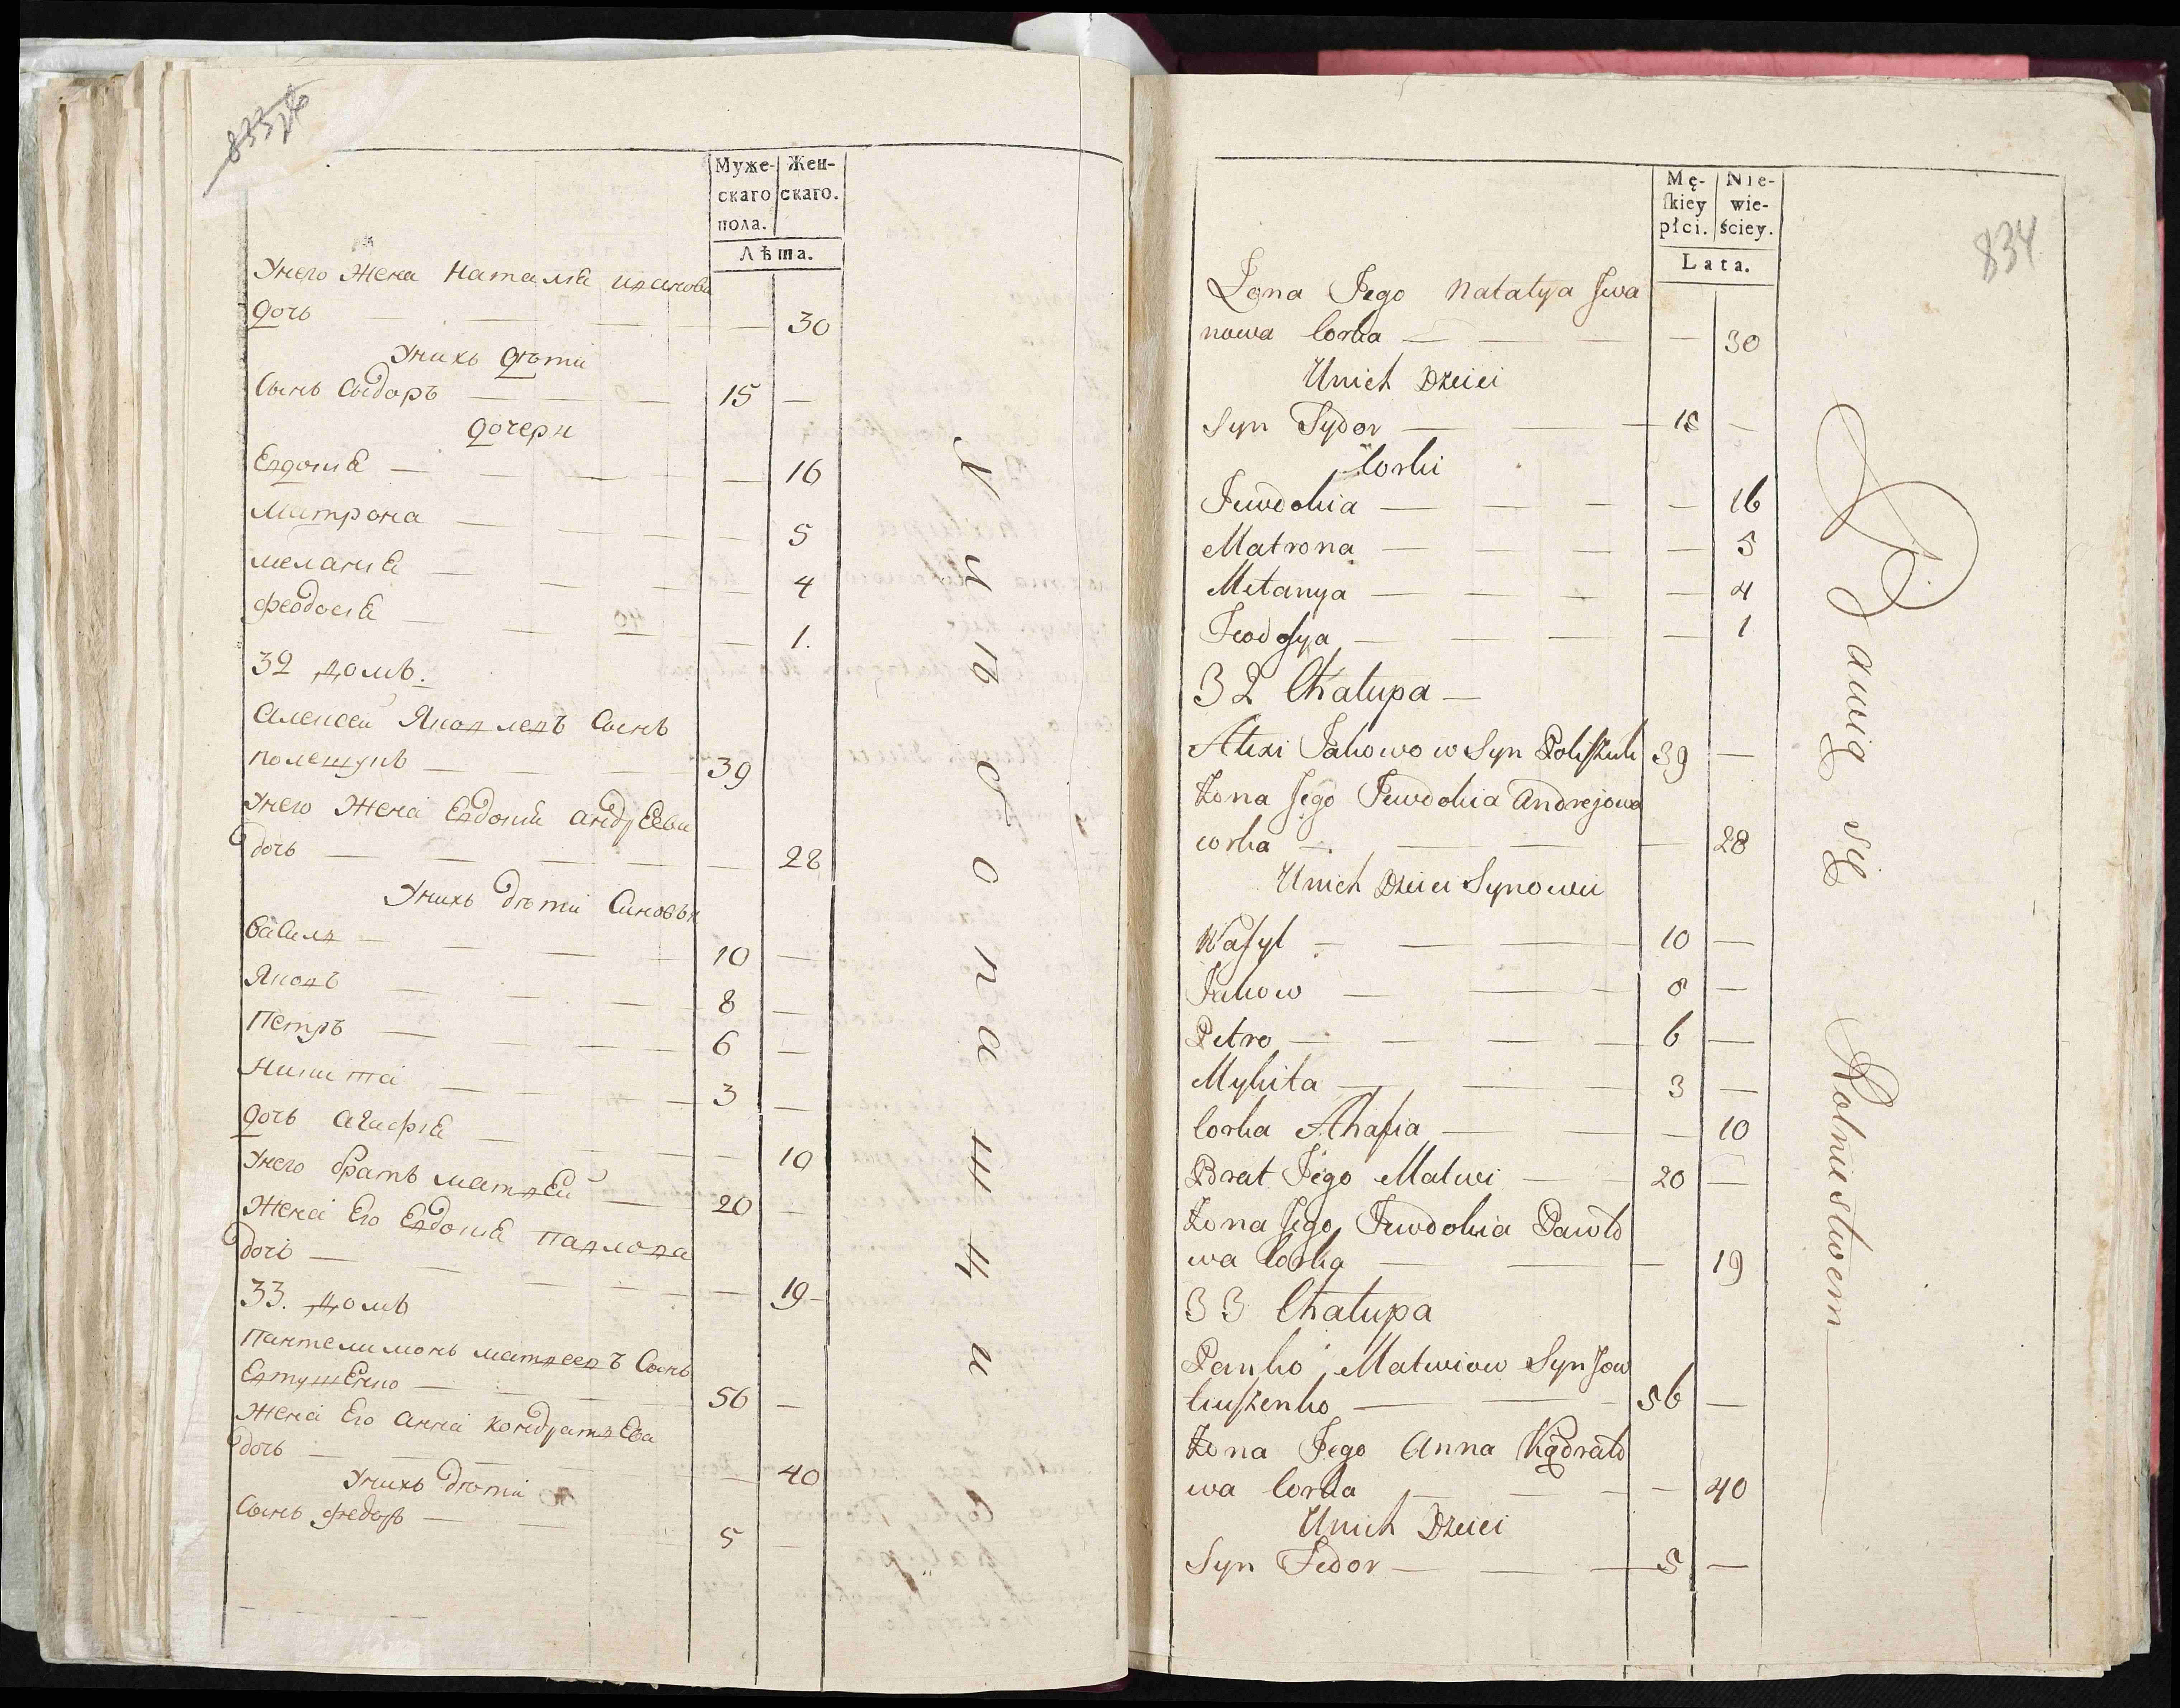 Муже-
скаго
пола.
Жен-
скаго.
Лѣта.
Унего Жена Наталиѣ ивanова
дочь — 30
Унихъ дѣти
Сынъ Сыдоръ — 15 —
дочери
Евдокиѣ — 16
Матрона — 5
меланиѣ — 4
феодосиѣ — 1.
32 домъ.
Алексей Яковлевъ Сынъ
полещукъ — 39
Унего Жена Евдокиѣ андрѣева
дочь — 28
Унихъ дѣти Синовьи
Василь — 10 —
Яковъ — 8 —
Петръ — 6 —
Никита — 3 —
дочь агафиѣ — 10
Унего братъ матвѣй — 20 —
Жена Его Евдокиѣ павлова
дочь — 19 —
33. домъ
Пантелимонъ матвеевъ Сынъ
Евтушѣнко — 56 —
Жена Его анна кондратѣва
дочь — 40
Унихъ дѣти
Сынъ федоръ — 5 —
834
Mę-
skiey
płci.
Nie-
wie-
ściey.
Lata.
Żona Jego Natalya Jwa
nowa Corka — 30
Unich Dzieci
Syn Sydor — 15 —
Corki
Jewdokia — 16
Matrona — 5
Melanya — 4
Feodosya — 1
32 Chałupa —
Alexi Jakowow Syn Poliszuk 39 —
Żona Jego Jewdokia Andrejowa
corka — 28
Unich Dzieci Synowie
Wasyl — 10 —
Jakow — 8 —
Petro — 6 —
Mykita — 3 —
Corka Ahafia — 10
Brat Jego Matwi — 20 —
Żona Jego Jewdokia Pawło
wa Corka — 19
33 Chałupa
Panko Matwiow Syn Jow
tuszenko — 56 —
Żona Jego Anna Kądrato
wa Corka — 40
Unich Dzieci
Syn Fedor — 5 —
Bawią się Rolnictwem